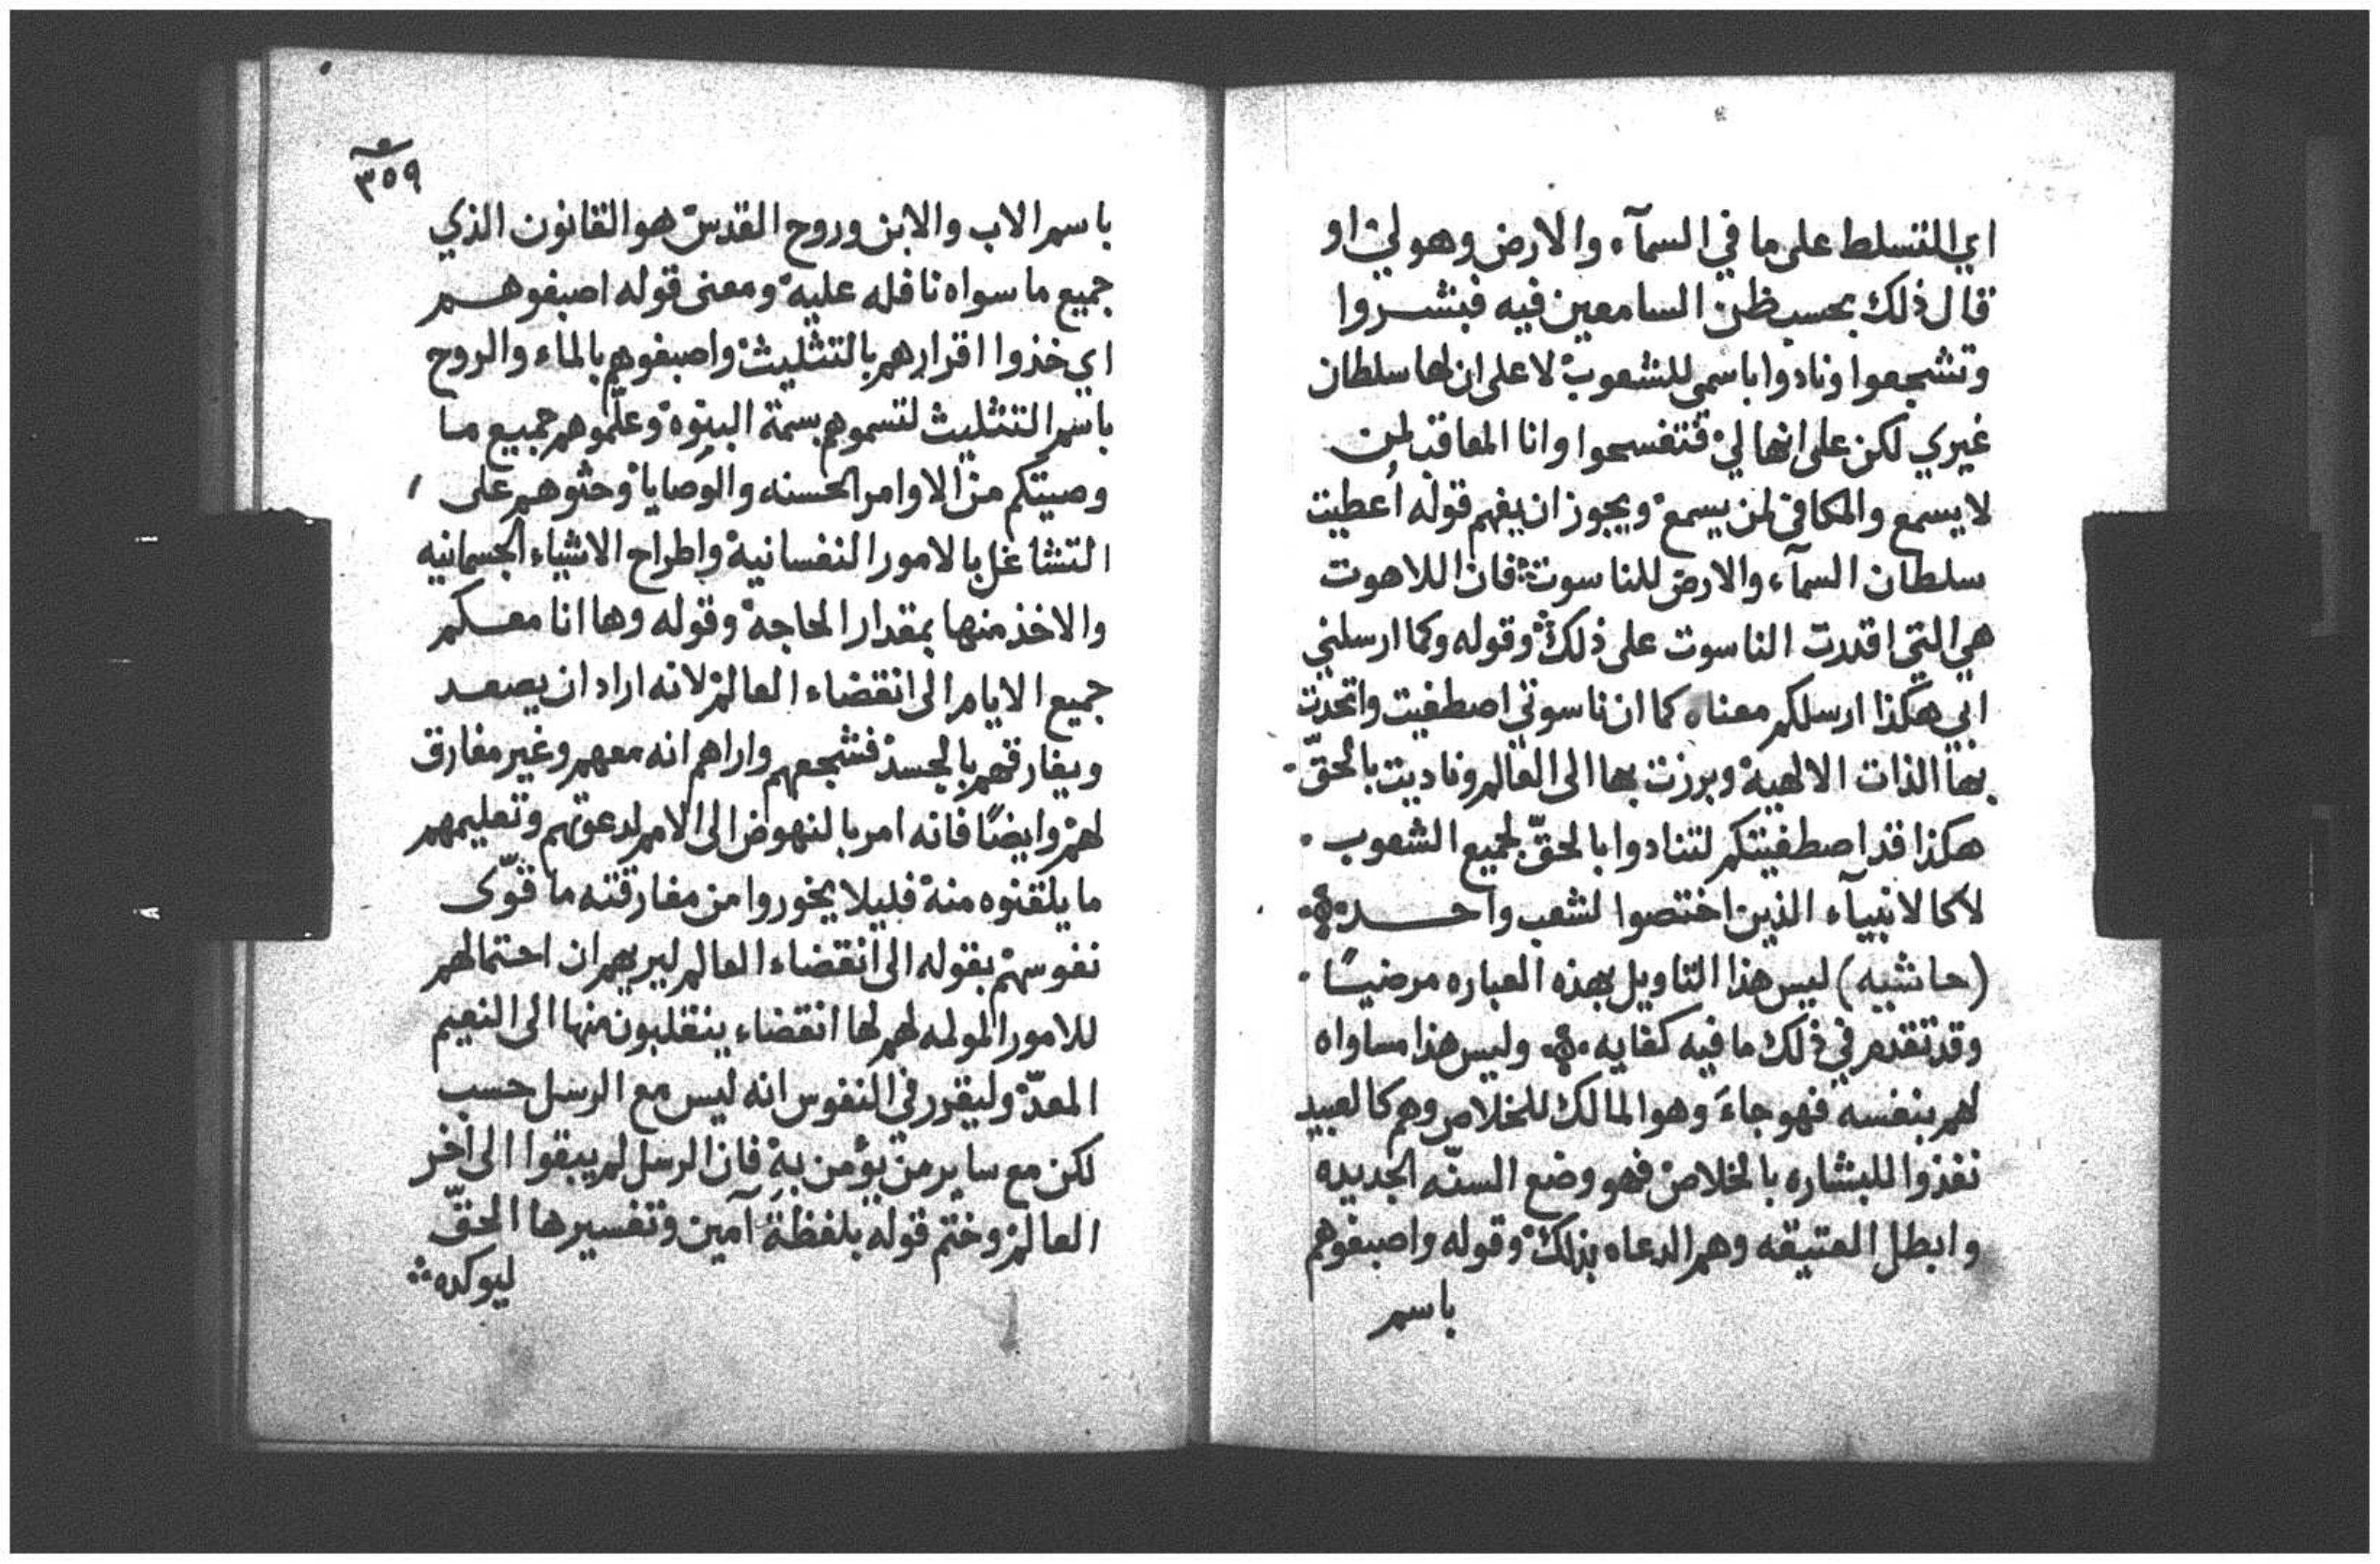 اي التسلط على ما في السمآء والارض وهو لي او
قال ذلك بحسب ظن السامعين فيه فبشروا
وتشجعوا ونادوا باسمي للشعوب لا على ان لها سلطان
غيري لكن على انها لي فتفسحوا وانا المعاقب لمن
لا يسمع والمكافى لمن يسمع ويجوز ان يفهم قوله أعطيت
سلطان السمآء والارض للناسوت فان اللاهوت
هي التي اقدرت الناسوت على ذلك وقوله وكما ارسلني
ابي هكذا ارسلكم معناه كما ان ناسوتي اصطفيت واتحدت
بها الذات الالهية وبرزت بها الى العالم وناديت بالحقّ
هكذا قد اصطفيتكم لتنادوا بالحقّ لجميع الشعوب
لا كالانبيآء الذين اختصوا لشعب واحد
(حاشيه) ليس هذا التاويل بهذه العباره مرضيًا
وقد تقدم في ذلك ما فيه كفايه وليس هذا مساواه
لهم بنفسه فهو جاء وهو المالك للخلاص وهم كالعبيد
نفذوا للبشاره بالخلاص فهو وضع السنّه الجديده
وابطل العتيقه وهم الدعاه بذلك وقوله واصبغوهم
باسم
٣٥٩
باسم الاب والابن وروح القدس هو القانون الذي
جميع ما سواه نافله عليه ومعنى قوله اصبغوهم
اي خذوا اقرارهم بالتثليث واصبغوهم بالماء والروح
باسم التثليث لتسموهم بسمة البنوه وعلّموهم جميع ما
وصيتكم من الاوامر الحسنه والوصايا وحثوهم على
التشاغل بالامور النفسانية واطراح الاشياء الجسمانيه
والاخذ منها بمقدار الحاجة وقوله وها انا معكم
جميع الايام الى انقضاء العالم لانه اراد ان يصعد
ويفارقهم بالجسد فشجعهم واراهم انه معهم وغير مفارق
لهم وايضًا فانه امر بالنهوض الى الامم لدعوتهم وتعليمهم
ما يلقنوه منه فليلا يخوروا من مفارقته ما قوّى
نفوسهم بقوله الى انقضاء العالم ليريهم ان احتمالهم
للامور المولمه لهم لها انقضاء ينقلبون منها الى النعيم
المعدّ وليقرر في النفوس انه ليس مع الرسل حسب
لكن مع ساير من يؤمن به فان الرسل لم يبقوا الى اخر
العالم وختم قوله بلفظة آمين وتفسيرها الحقّ
ليوكده